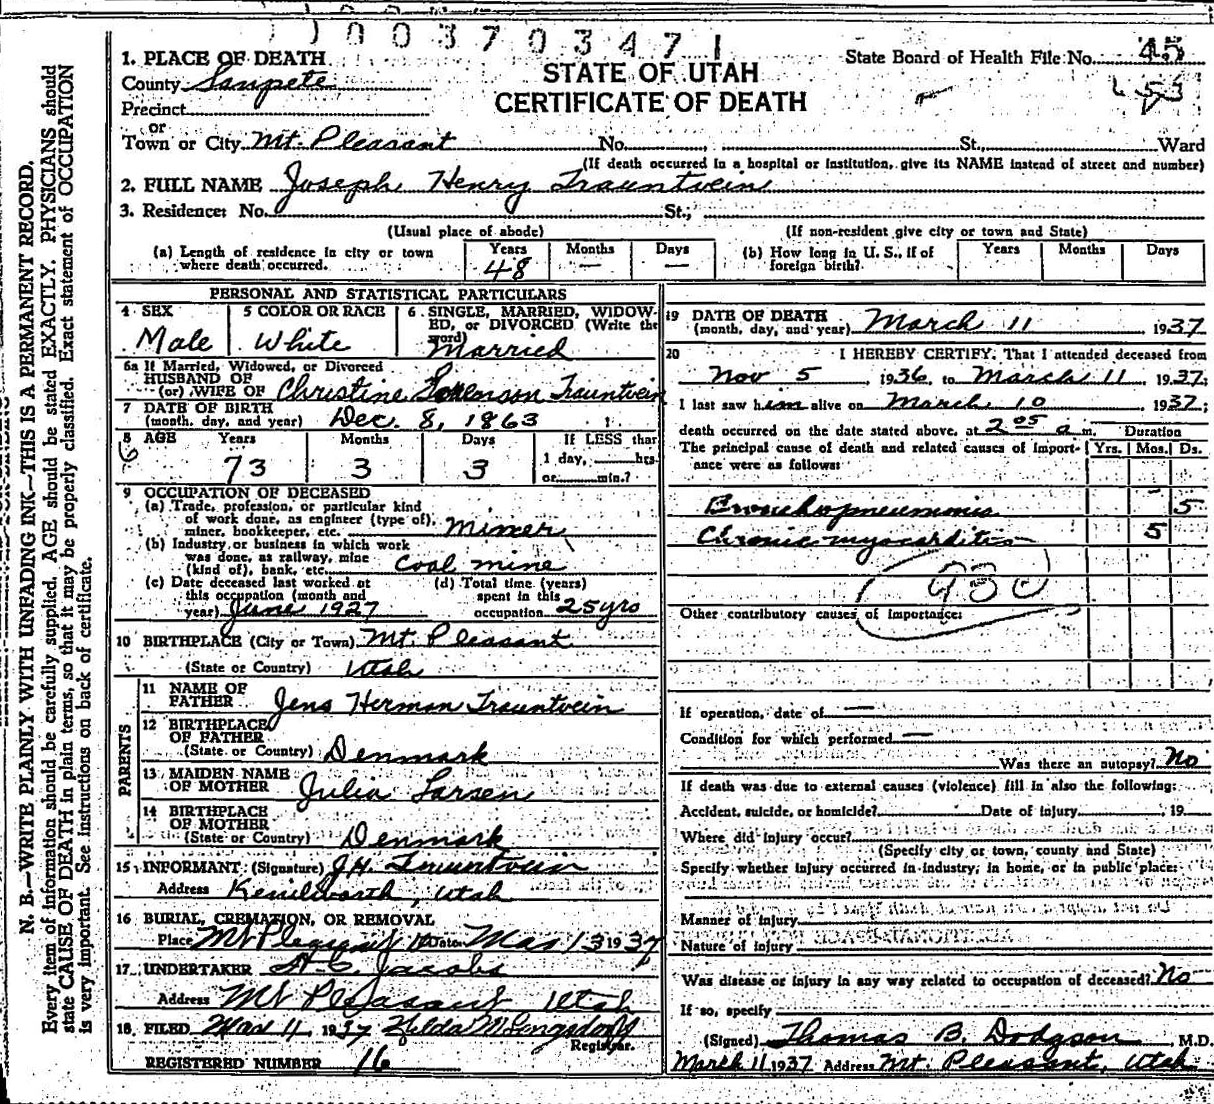 1003703471
1. PLACE OF DEATH
State Board of Health File No. 45
County Sanpete
STATE OF UTAH
CERTIFICATE OF DEATH
Precinct
or
Town or City Mt. Pleasant No. St., Ward
(If death occurred in a hospital or institution, give its NAME instead of street and number)
2. FULL NAME Joseph Henry Trauntvein
3. Residence: No. St.,
(Usual place of abode) (If non-resident give city or town and State)
(a) Length of residence in city or town where death occurred. Years 48 Months — Days —
(b) How long in U. S., if of foreign birth? Years Months Days
PERSONAL AND STATISTICAL PARTICULARS
4 SEX Male
5 COLOR OR RACE White
6 SINGLE, MARRIED, WIDOWED, or DIVORCED (Write the word) Married
6a If Married, Widowed, or Divorced
HUSBAND OF
(or) WIFE OF Christine Sorenson Trauntvein
7 DATE OF BIRTH
(month, day, and year) Dec. 8, 1863
8 AGE Years 73 Months 3 Days 3 If LESS than 1 day, hrs. or min.?
9 OCCUPATION OF DECEASED
(a) Trade, profession, or particular kind
of work done, as engineer (type of),
miner, bookkeeper, etc. Mimer
(b) Industry or business in which work
was done, as railway, mine
(kind of), bank, etc. Coal mine
(c) Date deceased last worked at
this occupation (month and
year) June 1927
(d) Total time (years)
spent in this
occupation 25 yrs
10 BIRTHPLACE (City or Town) Mt. Pleasant
(State or Country) Utah
PARENTS
11 NAME OF
FATHER Jens Herman Trauntvein
12 BIRTHPLACE
OF FATHER
(State or Country) Denmark
13 MAIDEN NAME
OF MOTHER Julia Larsen
14 BIRTHPLACE
OF MOTHER
(State or Country) Denmark
15 INFORMANT (Signature) J.H. Trauntvein
Address Kenilworth, Utah
16 BURIAL, CREMATION, OR REMOVAL
Place Mt Pleasant Date Mar 13 1937
17 UNDERTAKER A. C. Jacobs
Address Mt Pleasant Utah
18 FILED Mar 11, 1937 Hilda M Longsdorf
Registrar.
REGISTERED NUMBER 16
19 DATE OF DEATH
(month, day, and year) March 11 1937
20 I HEREBY CERTIFY, That I attended deceased from
Nov 5 1936, to March 11, 1937;
I last saw him alive on March 10 1937;
death occurred on the date stated above, at 2 05 a m. Duration
The principal cause of death and related causes of importance were as follows: Yrs. Mos. Ds.
Bronchopneumonia 5
Chronic myocarditis 5
930
Other contributory causes of importance:
If operation, date of —
Condition for which performed —
Was there an autopsy? No
If death was due to external causes (violence) fill in also the following:
Accident, suicide, or homicide? Date of injury , 19
Where did injury occur?
(Specify city or town, county and State)
Specify whether injury occurred in industry, in home, or in public place:
Manner of injury
Nature of injury
Was disease or injury in any way related to occupation of deceased? No
If so, specify
(Signed) Thomas B. Dodgson, M.D.
March 11 1937 Address Mt. Pleasant, Utah
N. B.—WRITE PLAINLY WITH UNFADING INK—THIS IS A PERMANENT RECORD.
Every item of information should be carefully supplied. AGE should be stated EXACTLY. PHYSICIANS should
state CAUSE OF DEATH in plain terms, so that it may be properly classified. Exact statement of OCCUPATION
is very important. See instructions on back of certificate.